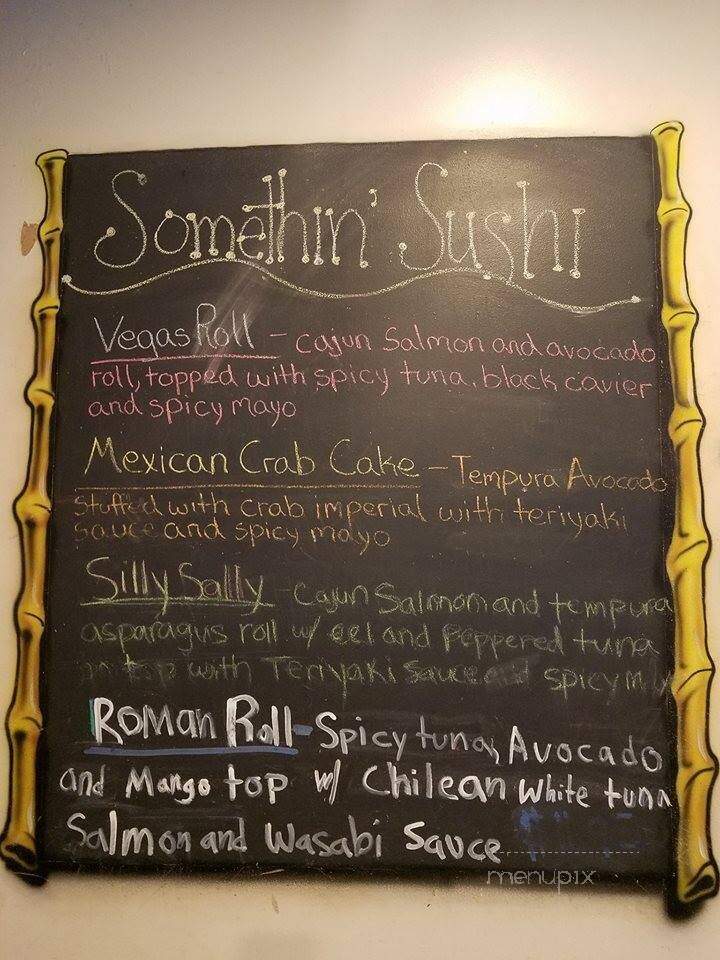 Somethin' Sushi
Vegas Roll - cajun Salmon and avocado
roll, topped with spicy tuna, black cavier
and spicy mayo
Mexican Crab Cake - Tempura Avocado
Stuffed with crab imperial with teriyaki
sauce and spicy mayo
Silly Sally - Cajun Salmon and tempura
asparagus roll w/ eel and peppered tuna
on top with Teriyaki Sauce and spicy mayo
Roman Roll - Spicy tuna, Avocado
and Mango top w/ Chilean white tuna
Salmon and Wasabi Sauce
menupix